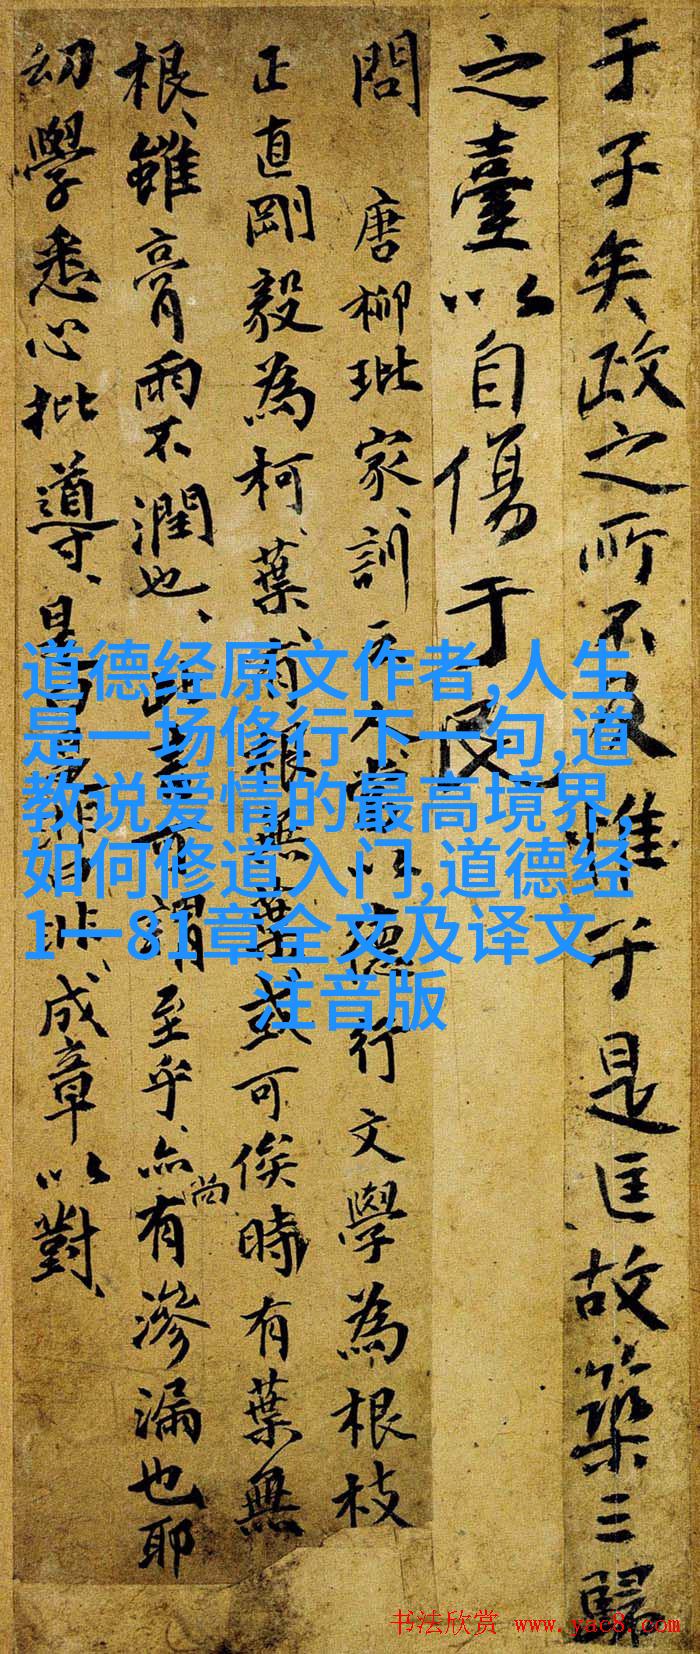 于子矣政之所不及惟于是匡故築三歸
之臺以自傷于民
問 唐柳玭家訓云人當以德行文學為根枝
正直剛毅為柯葉有根無葉或可俟時有葉無
根雖膏雨不潤也可謂至乎亦尚有滲漏也耶
幼學悉心批導是非成章以對
道德经原文作者,人生
是一场修行下一句,道
教说爱情的最高境界,
如何修道入门,道德经
1一81章全文及译文
注音版
书法欣赏 www.yac8.com